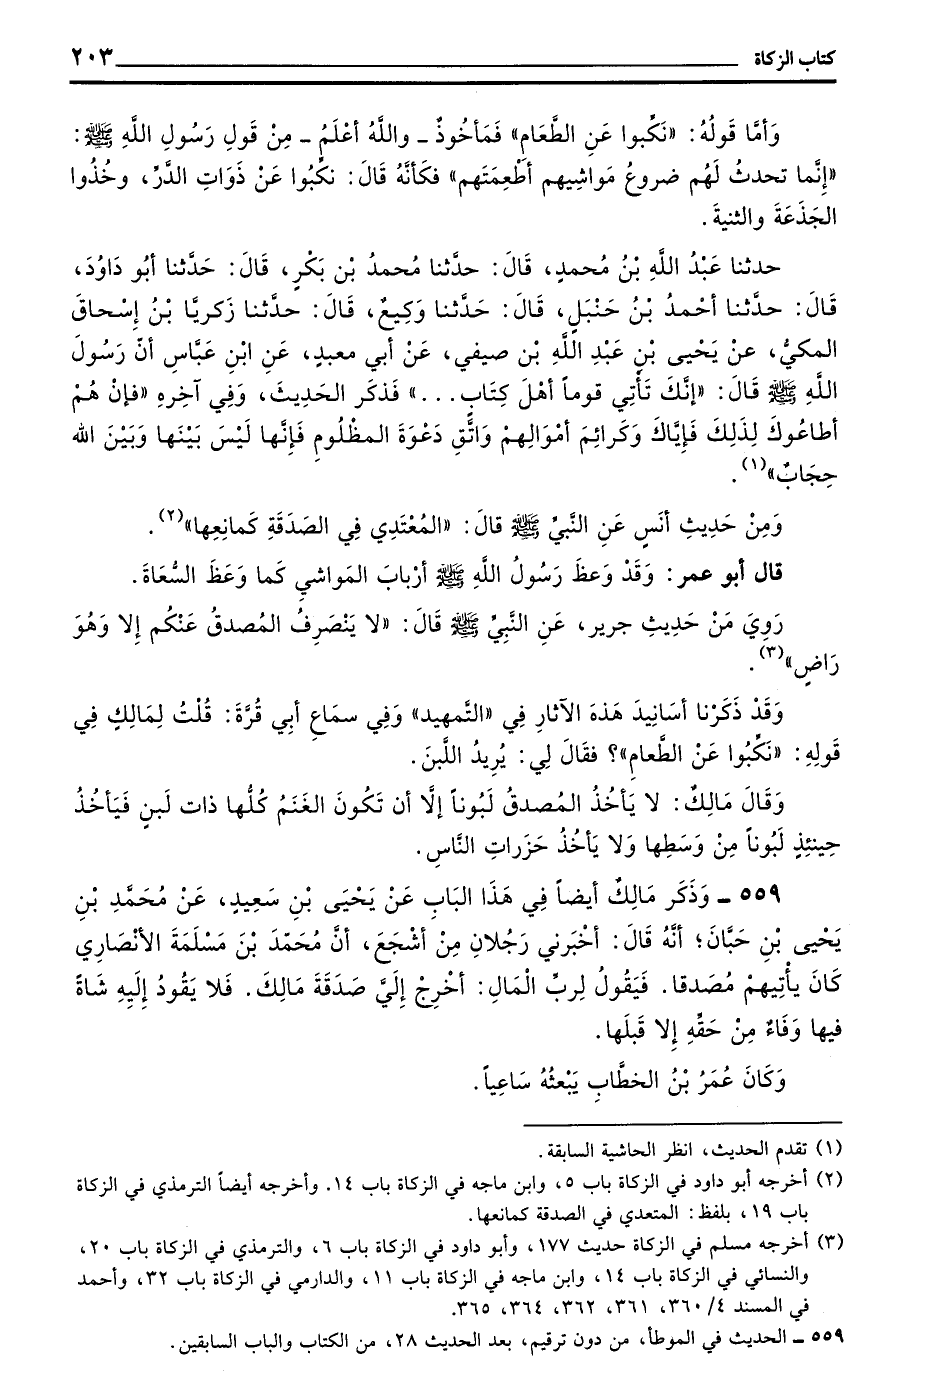 كتاب الزكاة ٢٠٣
وَأمَّا قَولُهُ: «نَكِّبوا عَنِ الطَّعَامِ» فَمَأخُوذٌ ـ واللَّهُ أعْلَمُ ـ مِنْ قَولِ رَسُولِ اللَّهِ ﷺ:
«إنَّما تحدثُ لَهُم ضروعُ مَواشيهم أطْعِمَتَهم» فكَأنَّهُ قَالَ: نكِّبُوا عَنْ ذَوَاتِ الدَّرِّ، وخُذُوا
الجَذَعَةَ والثنيةَ.
حدثنا عَبْدُ اللَّهِ بْنُ مُحمدٍ، قَالَ: حدَّثنا مُحمدُ بْن بَكْرٍ، قَالَ: حَدَّثنا أبُو دَاوُدَ،
قَالَ: حدَّثنا أحْمدُ بْنُ حَنْبَلٍ، قَالَ: حَدَّثنا وَكِيعٌ، قَالَ: حدَّثنا زَكريَّا بْنُ إسْحاقَ
المكيُّ، عنْ يَحْيى بْنِ عَبْدِ اللَّهِ بْنِ صيفي، عَنْ أبي معبدٍ، عَنِ ابْنِ عَبَّاسٍ أنَّ رَسُولَ
اللَّهِ ﷺ قَالَ: «إنَّكَ تَأْتِي قوماً أهْلَ كِتَابٍ...» فَذكَر الحَديثَ، وَفِي آخِرِهِ «فإنْ هُمْ
أطاعُوكَ لِذَلِكَ فَإيَّاكَ وَكَرائِمَ أمْوَالِهِمْ وَاتَّقِ دَعْوَةَ المظْلُومِ فَإنَّها لَيْسَ بَيْنَها وَبَيْنَ الله
حِجَابٌ»(١).
وَمِنْ حَدِيثِ أنَسٍ عَنِ النَّبيِّ ﷺ قالَ: «المُعْتَدِي فِي الصَدَقَةِ كَمانِعِها»(٢).
قال أبو عمر: وَقَدْ وَعظَ رَسُولُ اللَّهِ ﷺ أرْبابَ المَواشي كَما وَعَظَ السُّعَاةَ.
رَوِيَ مَنْ حَدِيثِ جرير، عَنِ النَّبِيِّ ﷺ قَالَ: «لا يَنْصَرِفُ المُصدقُ عَنْكُم إلا وَهُوَ
رَاضٍ»(٣).
وَقَدْ ذَكَرْنا أسَانِيدَ هَذهَ الآثارِ فِي «التَّمهيد» وَفِي سماعِ أبي قُرَّةَ: قُلْتُ لِمَالِكٍ فِي
قَولِهِ: «نَكِّبُوا عَنْ الطَّعامِ»؟ فقَالَ لِي: يُرِيدُ اللَّبنَ.
وَقَالَ مَالِكٌ: لا يَأخُذُ المُصدقُ لَبُوناً إلَّا أن تَكُونَ الغَنَمُ كُلُّها ذات لَبنٍ فَيَأخُذُ
حِينئِذٍ لَبُوناً مِنْ وَسَطِها وَلا يَأخُذُ حَزَراتِ النَّاسِ.
٥٥٩ ـ وَذَكَر مَالِكٌ أيضاً فِي هَذَا البَابِ عَنْ يَحْيَى بْنِ سَعِيدٍ، عَنْ مُحَمَّدِ بْنِ
يَحْيى بْنِ حَبَّانَ؛ أنَّهُ قَالَ: أخْبَرني رَجُلانِ مِنْ أشْجَعَ، أنَّ مُحَمّدَ بْنَ مَسْلَمَةَ الأنْصَارِي
كَانَ يأْتِيهمْ مُصَدقا. فَيَقُولُ لِربِّ الْمَالِ: أخْرِجْ إلَيَّ صَدَقَةَ مَالِكَ. فَلا يَقُودُ إلَيهِ شَاةً
فيها وَفَاءٌ مِنْ حَقِّهِ إلا قَبلَها.
وَكَانَ عُمَرُ بْنُ الخطَّابِ يَبْعثُهُ سَاعِياً.
(١) تقدم الحديث، انظر الحاشية السابقة.
(٢) أخرجه أبو داود في الزكاة باب ٥، وابن ماجه في الزكاة باب ١٤. وأخرجه أيضاً الترمذي في الزكاة
باب ١٩، بلفظ: المتعدي في الصدقة كمانعها.
(٣) أخرجه مسلم في الزكاة حديث ١٧٧، وأبو داود في الزكاة باب ٦، والترمذي في الزكاة باب ٢٠،
والنسائي في الزكاة باب ١٤، وابن ماجه في الزكاة باب ١١، والدارمي في الزكاة باب ٣٢، وأحمد
في المسند ٤/ ٣٦٠، ٣٦١، ٣٦٢، ٣٦٤، ٣٦٥.
٥٥٩ ـ الحديث في الموطأ، من دون ترقيم، بعد الحديث ٢٨، من الكتاب والباب السابقين.